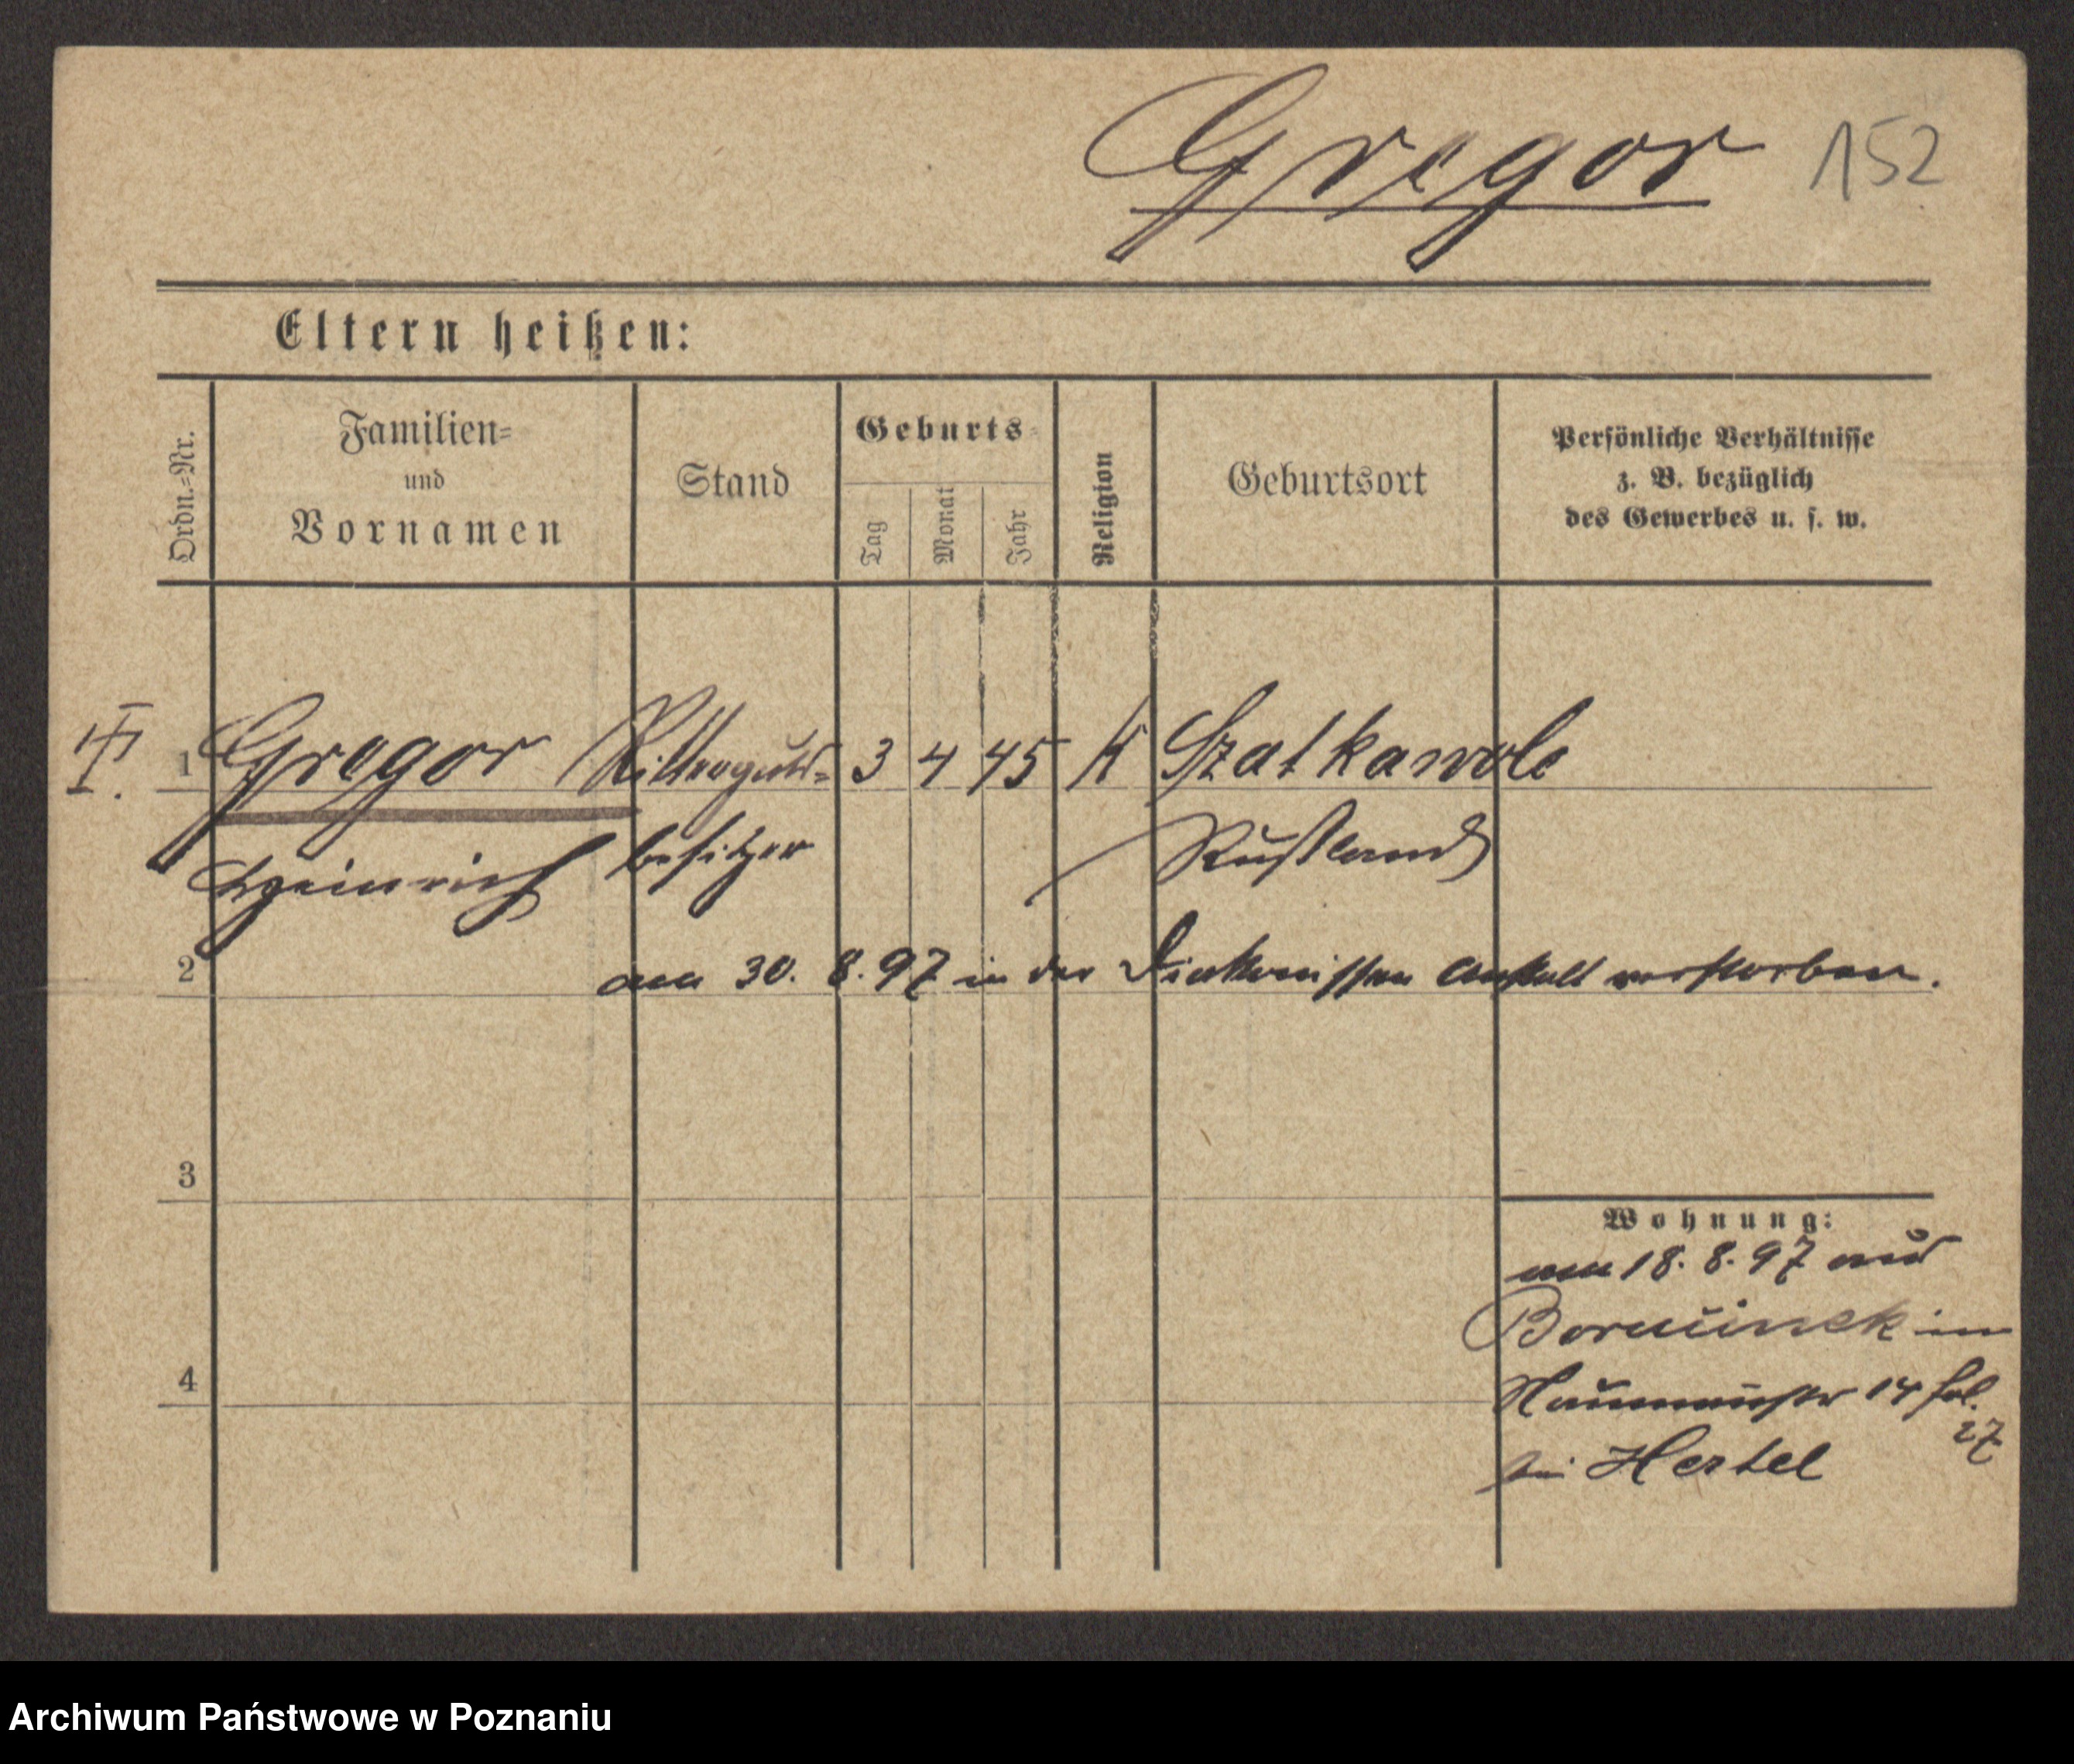 Gregor 152
Eltern heißen:
Ordn.-Nr.
Familien-
und
Vornamen
Stand
Geburts-
Tag
Monat
Jahr
Religion
Geburtsort
Persönliche Verhältnisse
z. B. bezüglich
des Gewerbes u. s. w.
1 Gregor Ritterguts- 3 4 45 K Szatkawole
Heinrich besitzer Rußland
2 am 30. 8. 97 in der Diakonissen Anstalt verstorben.
3
Wohnung:
am 18. 8. 97 aus
im
4 Naumannstr 14 fol.
27
bei Hertel
Archiwum Państwowe w Poznaniu